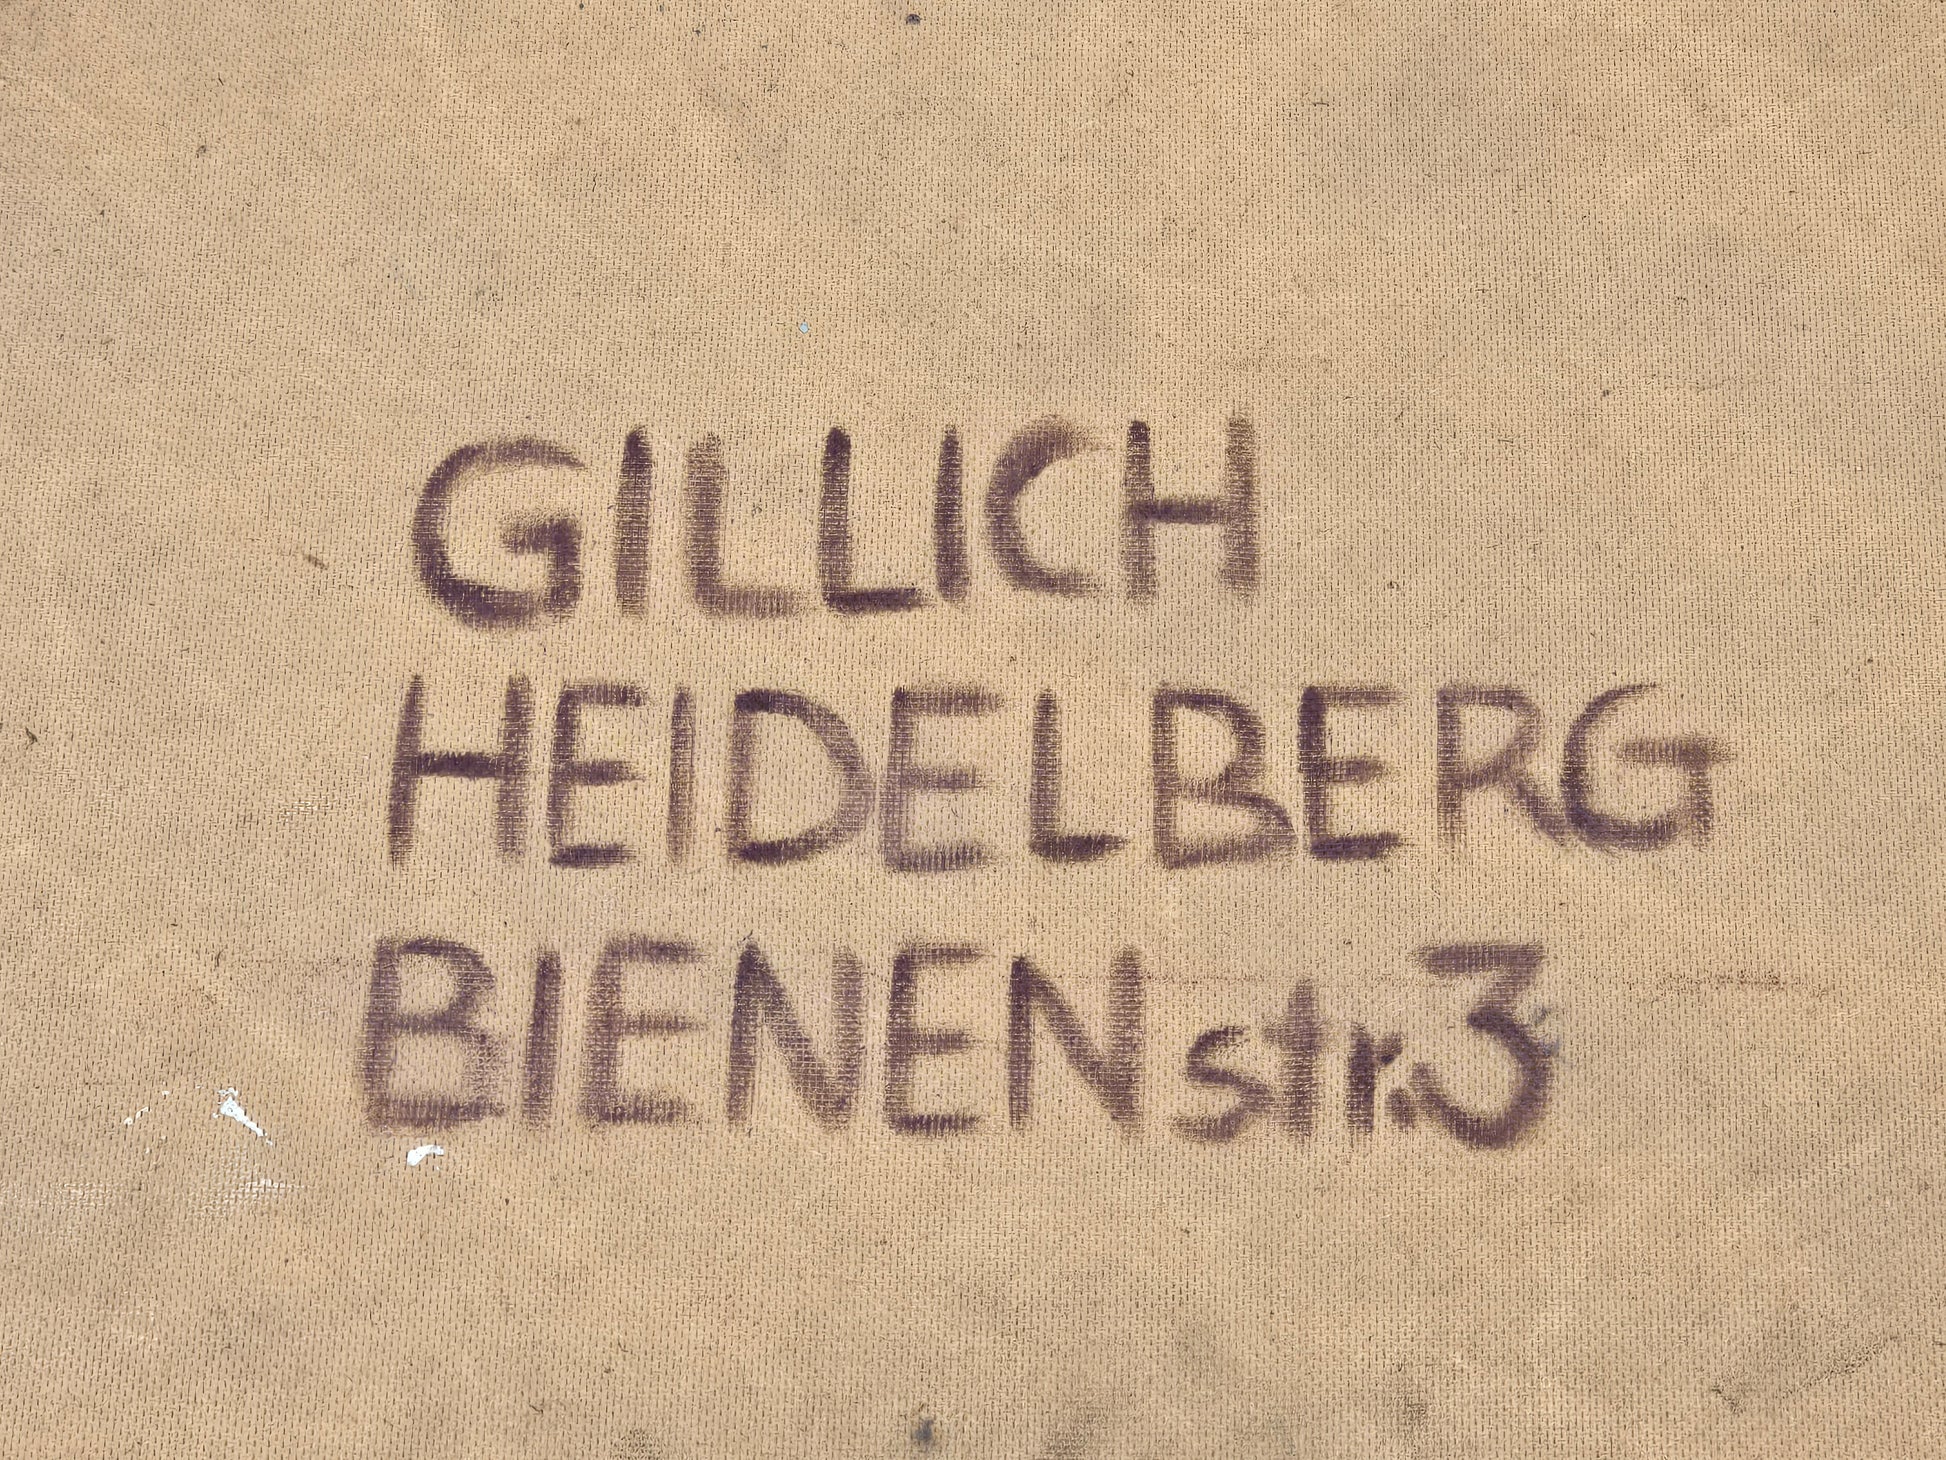 GILLICH
HEIDELBERG
BIENENstr.3